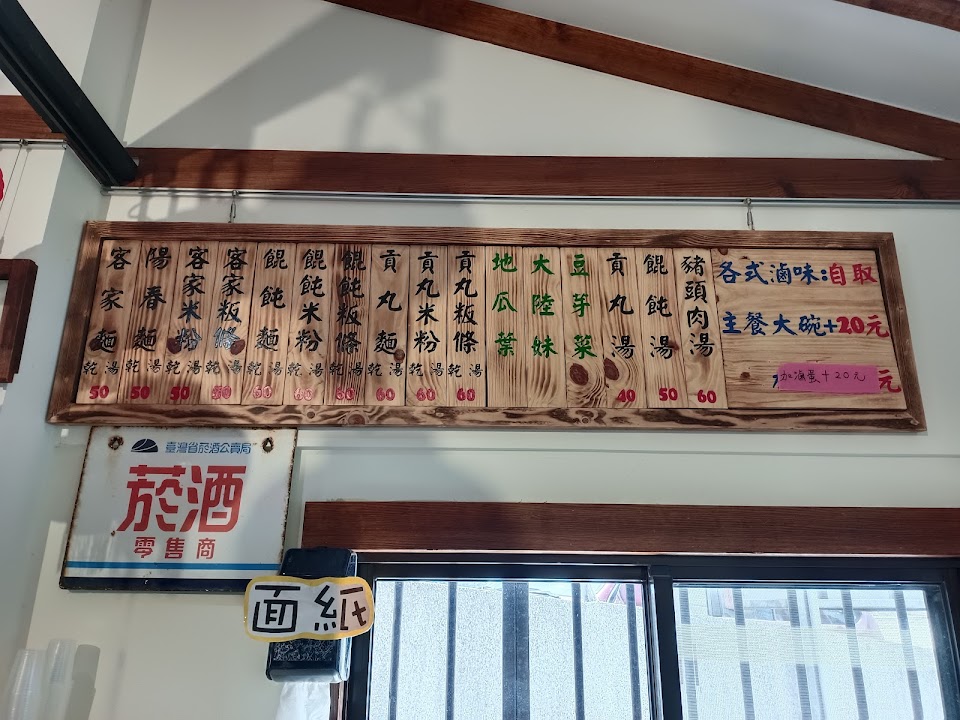 客家麵 乾湯 50
陽春麵 乾湯 50
客家米粉 乾湯 50
客家粄條 乾湯 50
餛飩麵 乾湯 60
餛飩米粉 乾湯 60
餛飩粄條 乾湯 60
貢丸麵 乾湯 60
貢丸米粉 乾湯 60
貢丸粄條 乾湯 60
地瓜葉
大陸妹
豆芽菜
貢丸湯 40
餛飩湯 50
豬頭肉湯 60
各式滷味:自取
主餐大碗+20元
加滷蛋+20元
元
臺灣省菸酒公賣局
菸酒
零售商
面紙